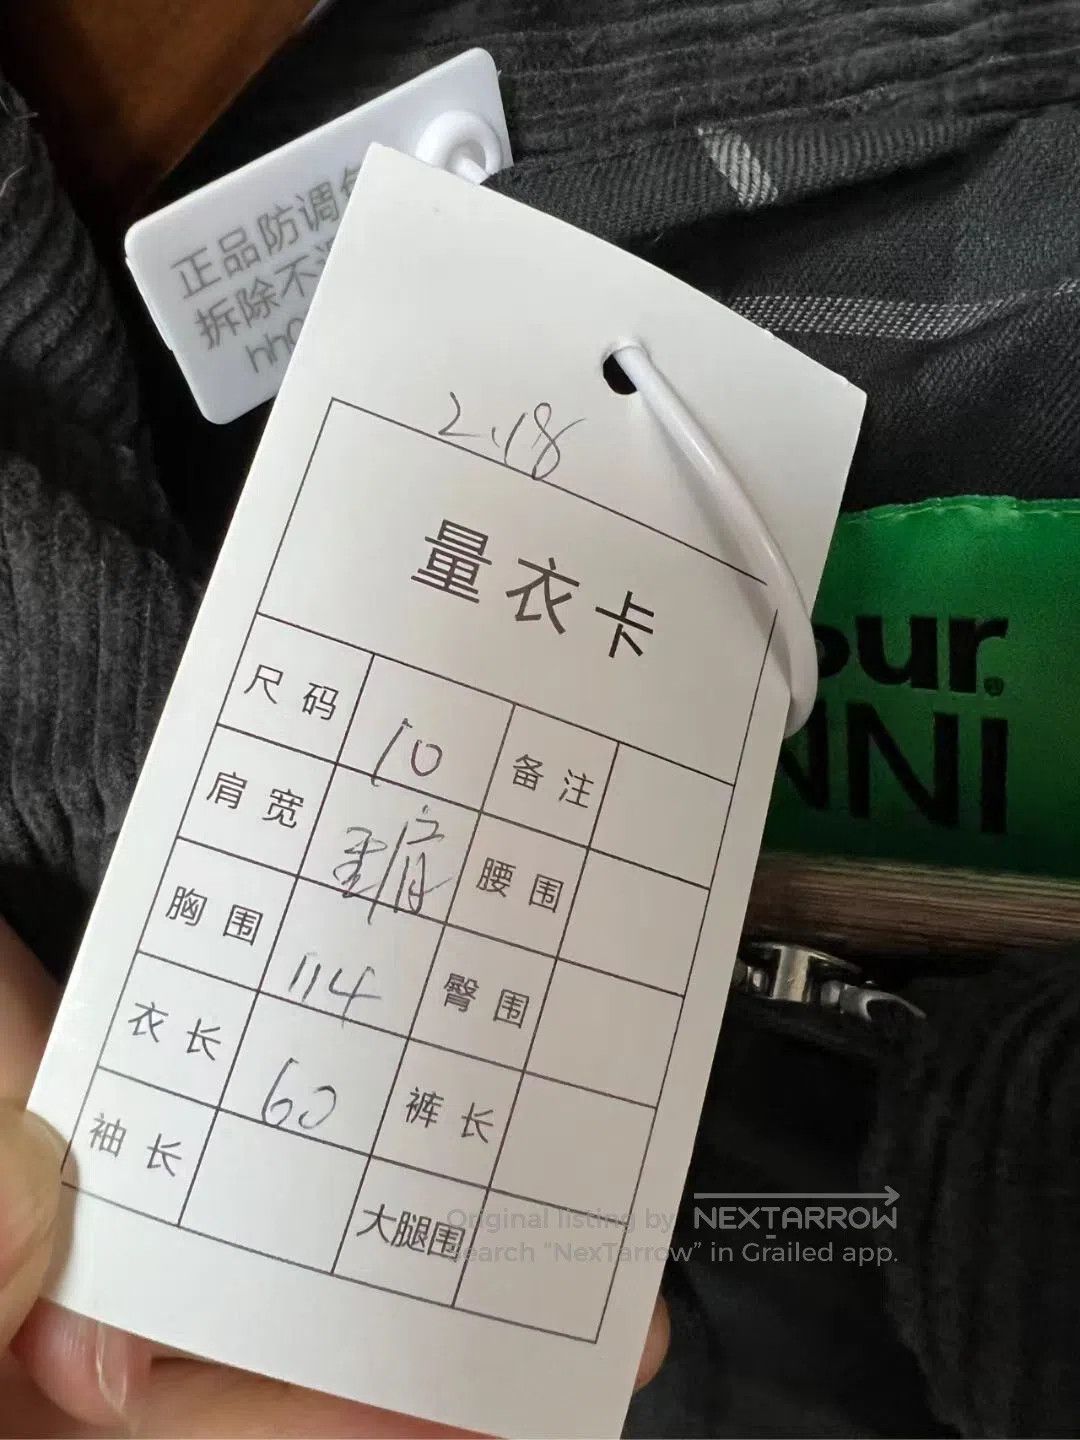 正品防调
拆除不
hh0
2.18
量衣卡
尺码 10 备注
肩宽 腰围
胸围 114 臀围
衣长 60 裤长
袖长 大腿围
our.
NNI
Original listing by NEXTARROW
Search "NexTarrow" in Grailed app.